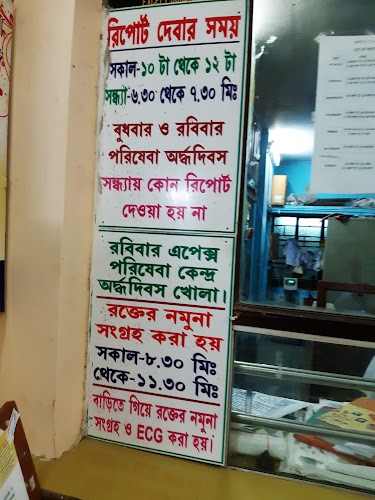 রিপোর্ট দেবার সময়
সকাল-১০ টা থেকে ১২ টা
সন্ধ্যা-৬.৩০ থেকে ৭.৩০ মিঃ
বুধবার ও রবিবার
পরিষেবা অর্দ্ধদিবস
সন্ধ্যায় কোন রিপোর্ট
দেওয়া হয় না
রবিবার এপেক্স
পরিষেবা কেন্দ্র
অর্দ্ধদিবস খোলা।
রক্তের নমুনা
সংগ্রহ করা হয়
সকাল-৮.৩০ মিঃ
থেকে-১১.৩০ মিঃ
বাড়িতে গিয়ে রক্তের নমুনা
সংগ্রহ ও ECG করা হয়।